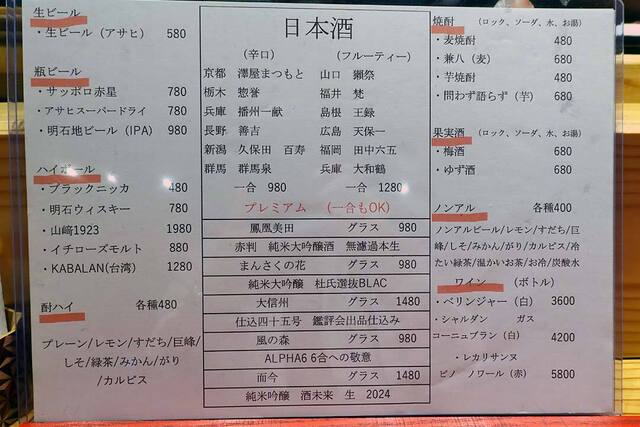 生ビール
・生ビール（アサヒ） 580
瓶ビール
・サッポロ赤星 780
・アサヒスーパードライ 780
・明石地ビール（IPA） 980
ハイボール
・ブラックニッカ 480
・明石ウィスキー 780
・山﨑1923 1980
・イチローズモルト 880
・KABALAN(台湾) 1280
酎ハイ 各種480
プレーン/レモン/すだち/巨峰/
しそ/緑茶/みかん/がり
/カルピス
日本酒
（辛口） （フルーティー）
京都 澤屋まつもと 山口 獺祭
栃木 惣誉 福井 梵
兵庫 播州一献 島根 王録
長野 善吉 広島 天保一
新潟 久保田 百寿 福岡 田中六五
群馬 群馬泉 兵庫 大和鶴
一合 980 一合 1280
プレミアム （一合もOK）
鳳凰美田 グラス 980
赤判 純米大吟醸酒 無濾過本生
まんさくの花 グラス 980
純米大吟醸 杜氏選抜BLAC
大信州 グラス 1480
仕込四十五号 鑑評会出品仕込み
風の森 グラス 980
ALPHA6 6合への敬意
而今 グラス 1480
純米吟醸 酒未来 生 2024
焼酎 （ロック、ソーダ、水、お湯）
・麦焼酎 480
・兼八（麦） 680
・芋焼酎 480
・問わず語らず（芋） 680
果実酒 （ロック、ソーダ、水、お湯）
・梅酒 680
・ゆず酒 680
ノンアル 各種400
ノンアルビール/レモン/すだち/巨
峰/しそ/みかん/がり/カルピス/冷
たい緑茶/温かいお茶/お冷/炭酸水
ワイン （ボトル）
・ベリンジャー（白） 3600
・シャルダン ガス
コーニュブラン（白） 4200
・レカリサンヌ
ピノ ノワール（赤） 5800